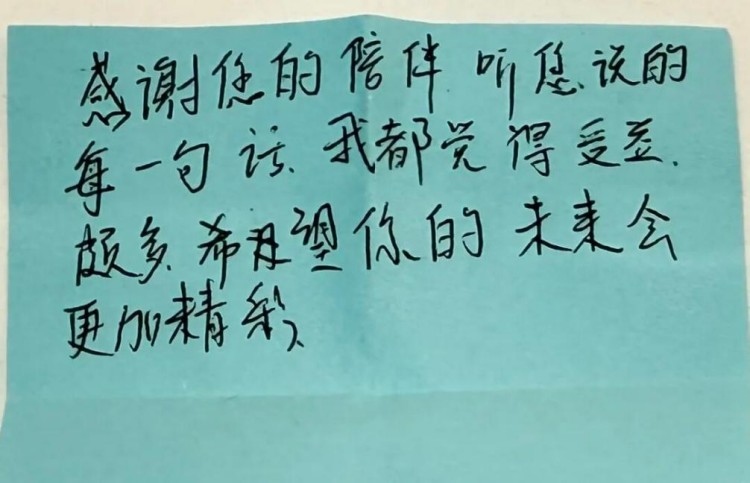 感谢您的陪伴听您说的
每一句话、我都觉得受益、
颇多、希望你的未来会
更加精彩、